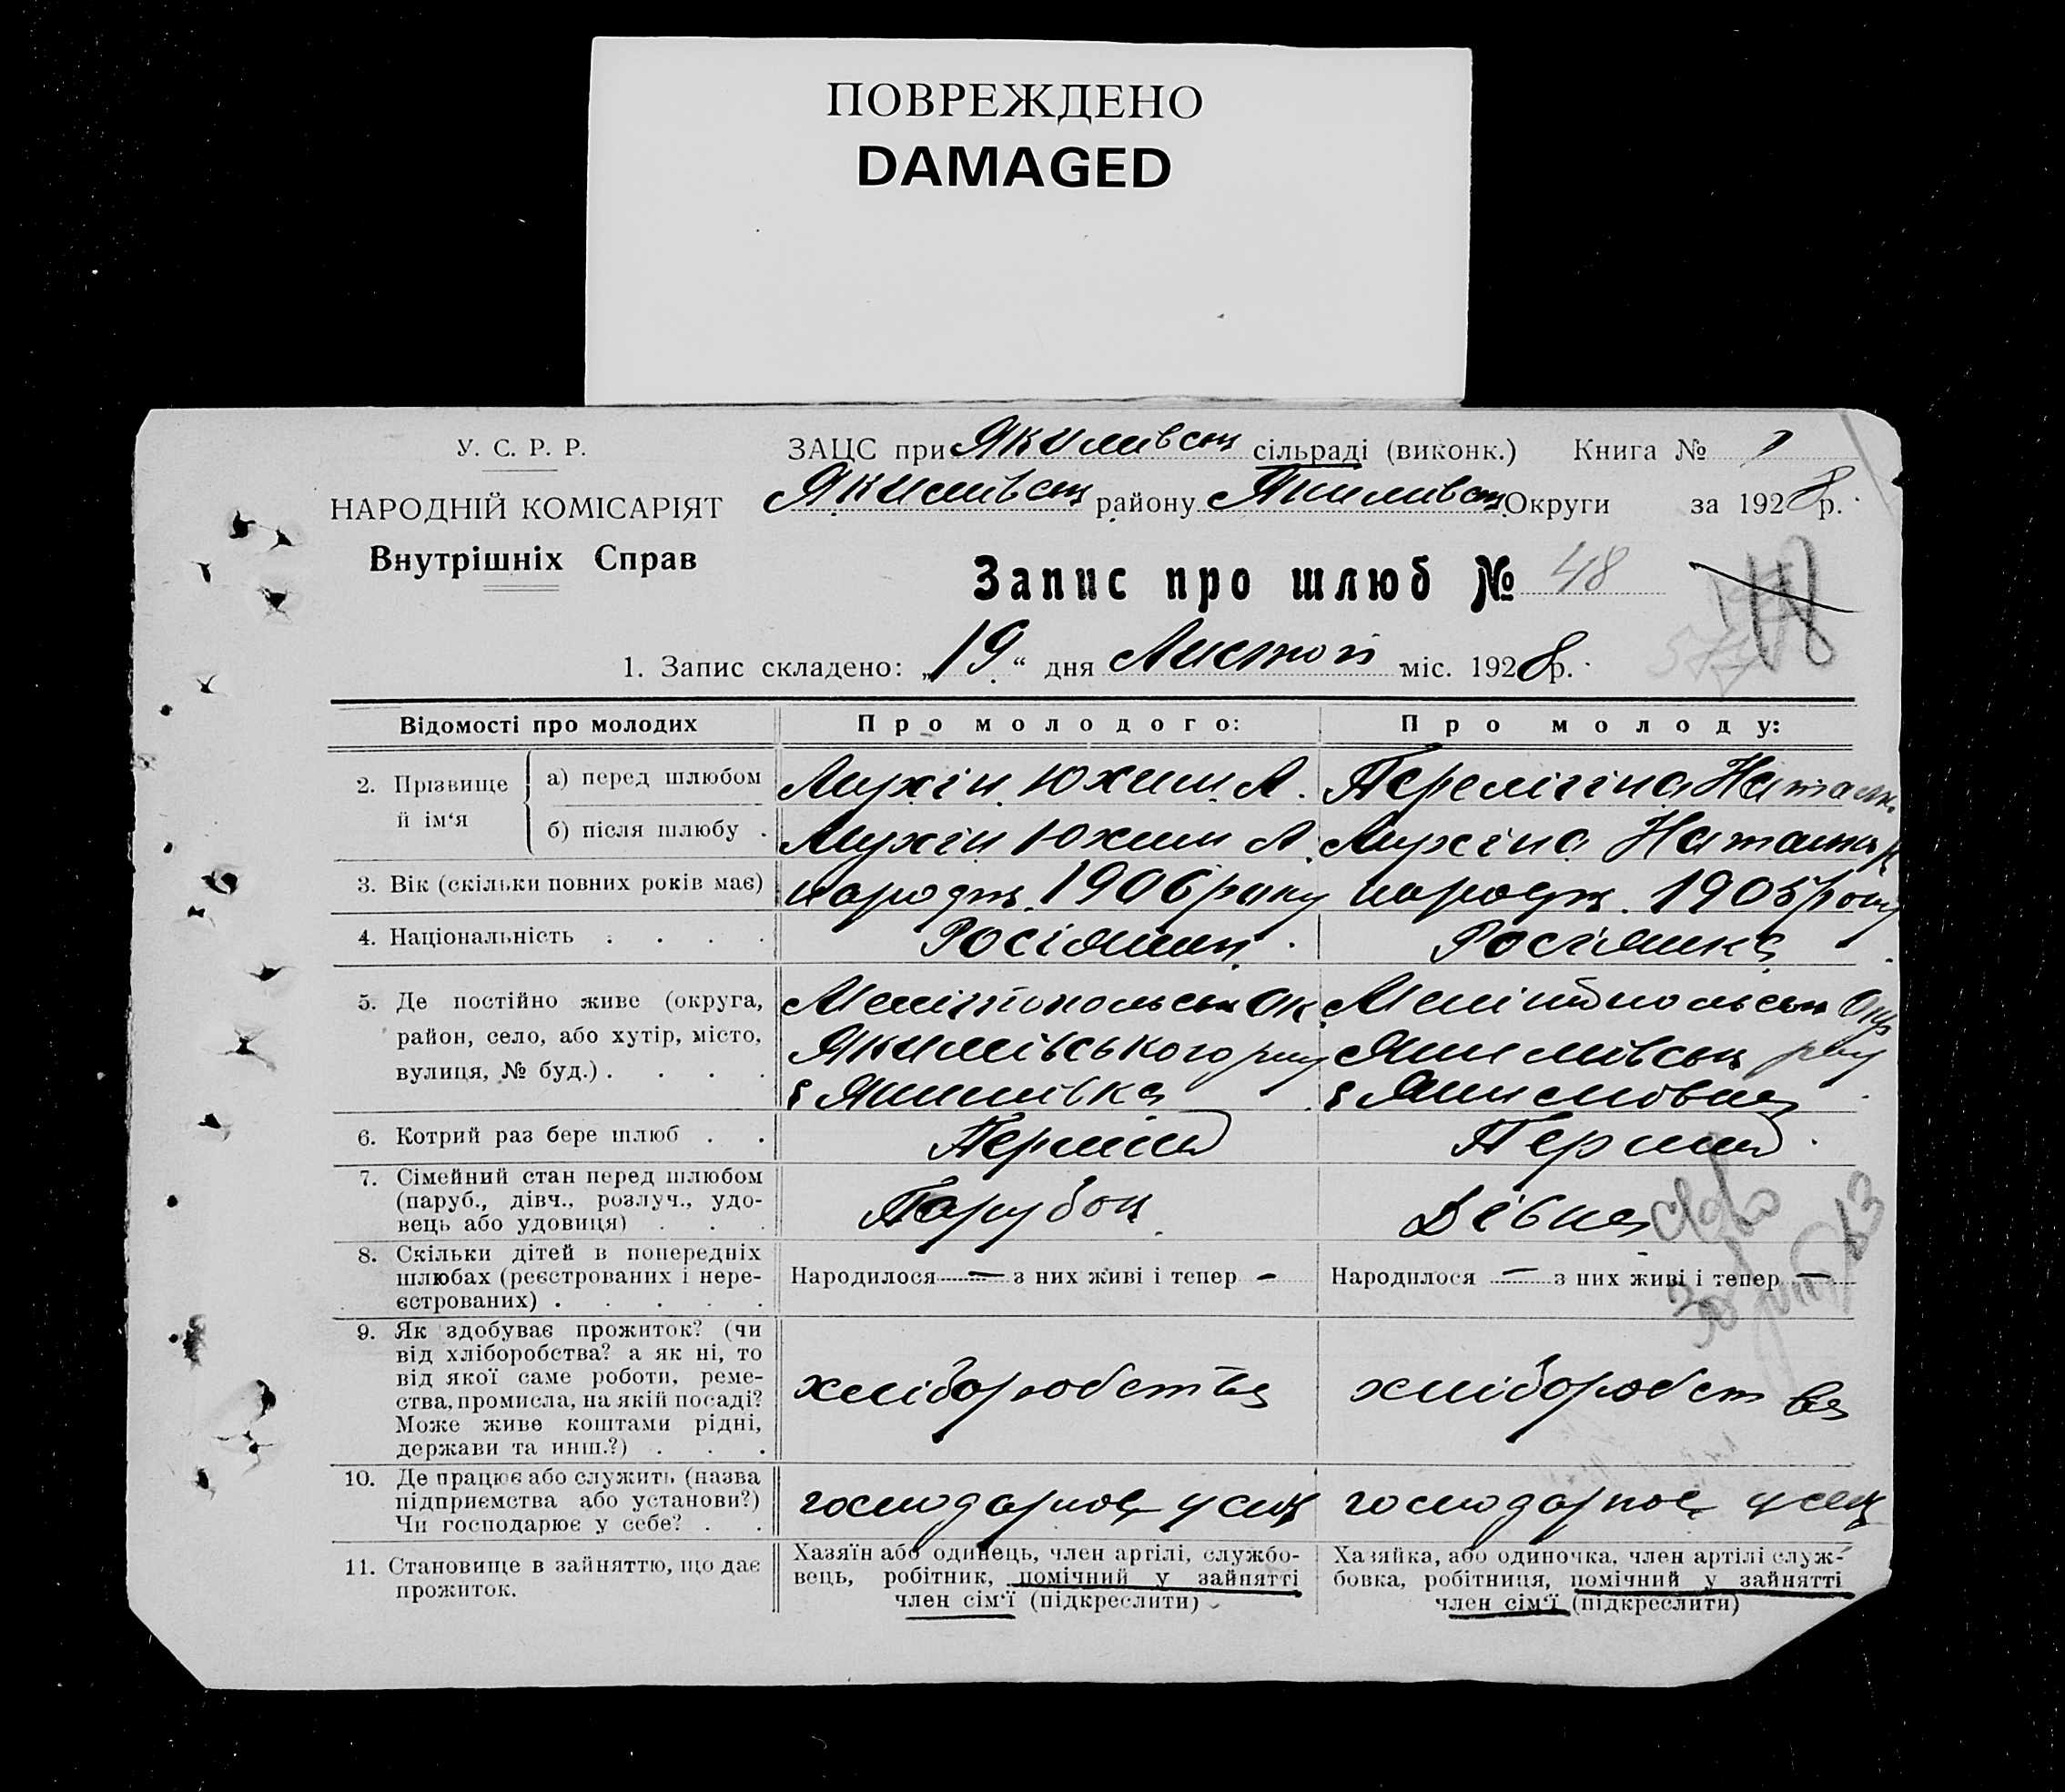 ПОВРЕЖДЕНО
DAMAGED
У. С. Р. Р.
НАРОДНІЙ КОМІСАРІЯТ
Внутрішніх Справ
ЗАЦС при Якимівськ сільраді (виконк.) Книга № 1
Якимівськ району Якимівськ Округи за 1928 р.
Запис про шлюб № 48
1. Запис складено: „19“ дня Листоп міс. 1928 р.
Відомості про молодих Про молодого: Про молоду:
2. Прізвище й ім‘я
а) перед шлюбом Мухін Юхим А. Перелігіна Наталк.
б) після шлюбу . Мухін Юхим А. Мухіна Наталк
3. Вік (скільки повних років має) народж. 1906 року народж. 1905 року
4. Національність . . . . Росіянин. Росіянка
5. Де постійно живе (округа, район, село, або хутір, місто, вулиця, № буд.) . . . .
Мелітопольськ Ок. Мелітопольськ Окр
Якимівського р-ну Якимівськ р-ну
с Якимівка с Якимовка
6. Котрий раз бере шлюб . . Перший Перший
7. Сімейний стан перед шлюбом (паруб., дівч., розлуч., удовець або удовиця) . . . Парубок Дівка
8. Скільки дітей в попередніх шлюбах (реєстрованих і нереєстрованих) . . . . .
Народилося — з них живі і тепер - Народилося — з них живі і тепер —
9. Як здобуває прожиток? (чи від хліборобства? а як ні, то від якої саме роботи, ремества, промисла, на якій посаді? Може живе коштами рідні, держави та инш.?) . . .
хліборобства хліборобства
10. Де працює або служить (назва підприємства або установи?) Чи господарює у себе? . .
господарює у себе господарює у себе
11. Становище в зайняттю, що дає прожиток.
Хазяїн або одинець, член артілі, службовець, робітник, помічний у зайнятті член сім‘ї (підкреслити)
Хазяйка, або одиночка, член артілі службовка, робітниця, помічний у зайнятті член сім‘ї (підкреслити)